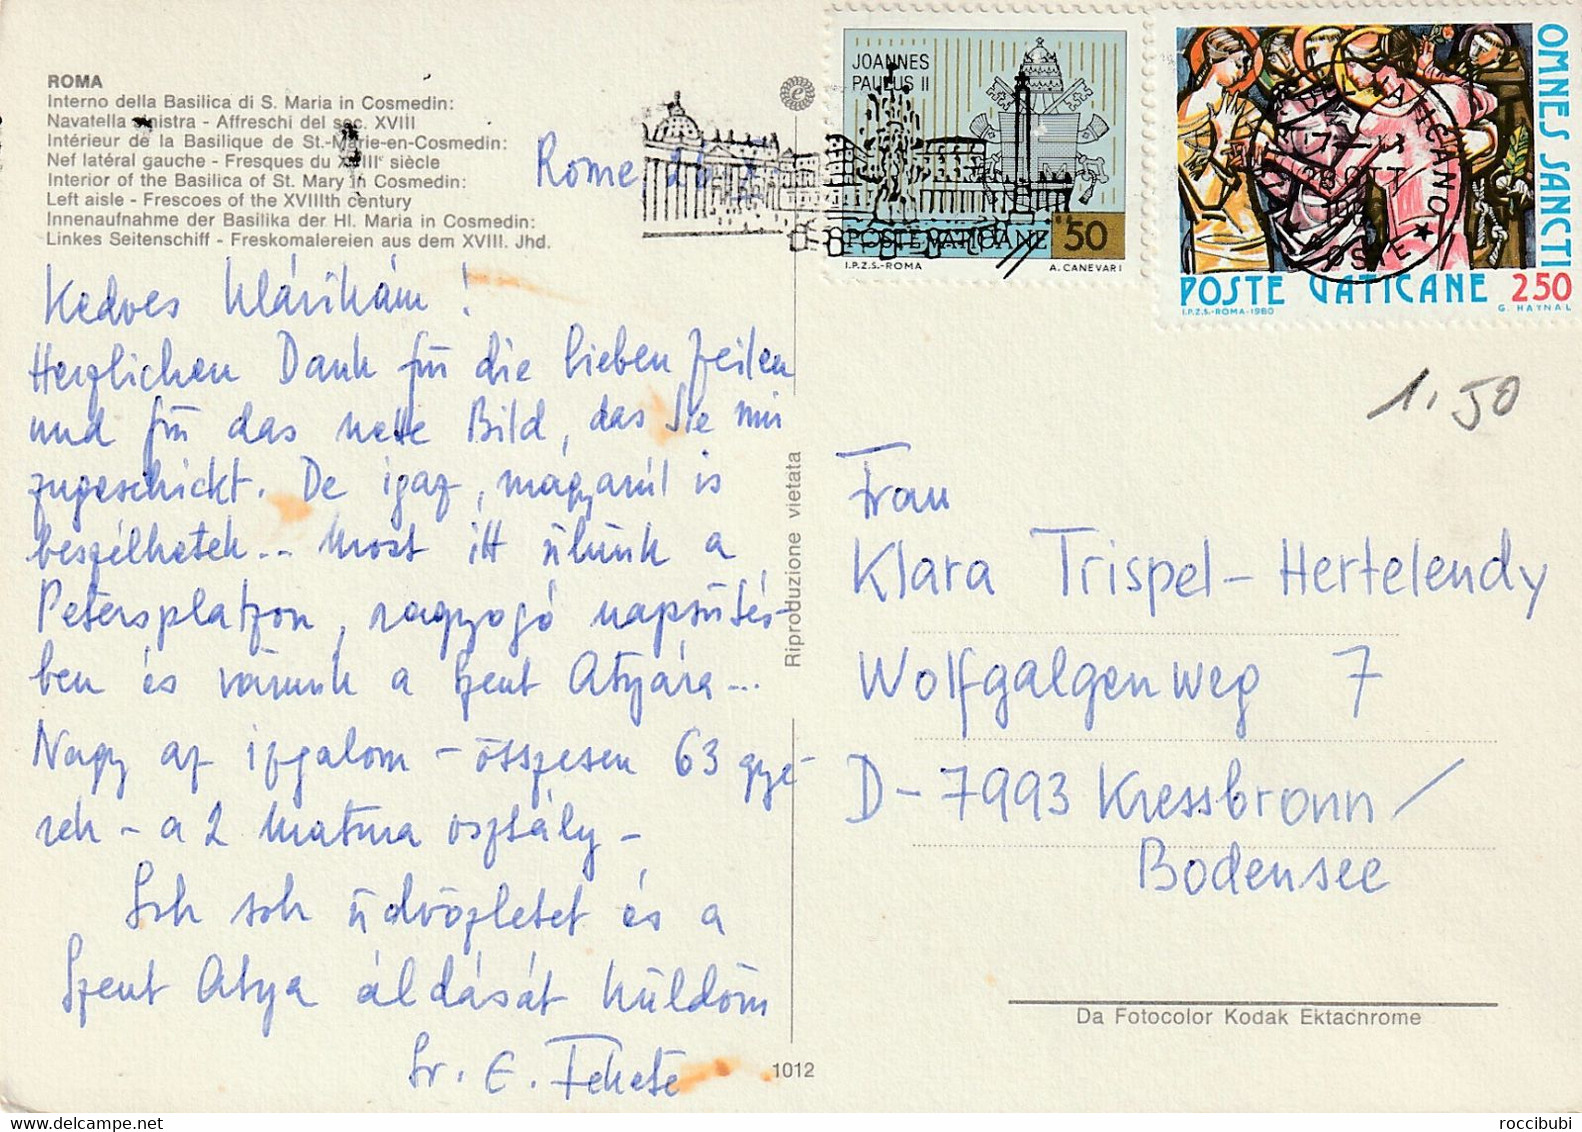 ROMA
Interno della Basilica di S. Maria in Cosmedin:
Navatella sinistra - Affreschi del sec. XVIII
Intérieur de la Basilique de St.-Marie-en-Cosmedin:
Nef latéral gauche - Fresques du XVIIIᵉ siècle
Interior of the Basilica of St. Mary in Cosmedin:
Left aisle - Frescoes of the XVIIIth century
Innenaufnahme der Basilika der Hl. Maria in Cosmedin:
Linkes Seitenschiff - Freskomalereien aus dem XVIII. Jhd.
Rome
Kedves Klárikám!
Herzlichen Dank für die lieben Zeilen
und für das nette Bild, das Sie mir
zugeschickt. De igaz, magyarúl is
beszélhetek.. Most itt ülünk a
Petersplatzon, ragyogó napsütés-
ben és várunk a Szent Atyára...
Nagy az izgalom - összesen 63 gye-
rek - a 2 matura osztály -
Sok sok üdvözletet és a
Szent Atya áldását küldöm
Sr. E. Fekete
Riproduzione vietata
1012
JOANNES
PAULUS II
POSTE VATICANE 50
I.P.Z.S.-ROMA A. CANEVARI
OMNES SANCTI
POSTE VATICANE 250
I.P.Z.S.-ROMA-1980 G. HAYNAL
1.50
Frau
Klara Trispel-Hertelendy
Wolfgalgenweg 7
D-7993 Kressbronn/
Bodensee
Da Fotocolor Kodak Ektachrome
roccibubi